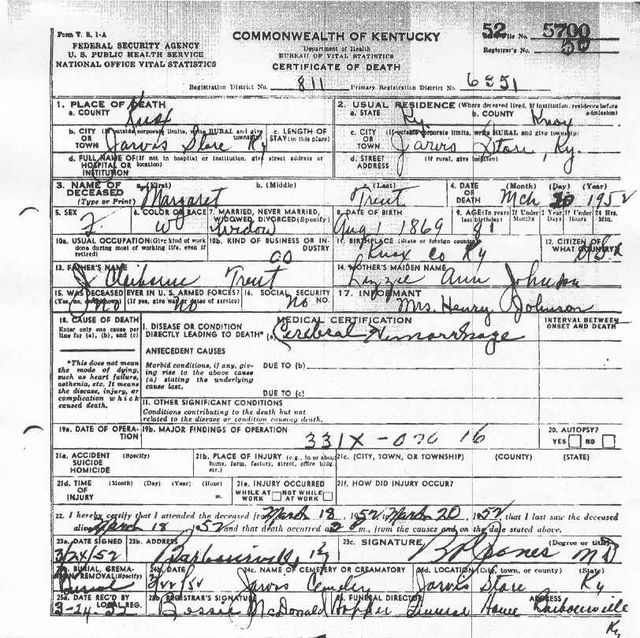 Form V. S. 1-A
FEDERAL SECURITY AGENCY
U. S. PUBLIC HEALTH SERVICE
NATIONAL OFFICE VITAL STATISTICS
COMMONWEALTH OF KENTUCKY
Department of Health
BUREAU OF VITAL STATISTICS
CERTIFICATE OF DEATH
52 File No. 5700
Registrar's No. 50
Registration District No. 811 Primary Registration District No. 6551
1. PLACE OF DEATH
a. COUNTY Knox
b. CITY (If outside corporate limits, write RURAL and give township) OR TOWN Jarvis Store Ky
c. LENGTH OF STAY (in this place)
d. FULL NAME OF (If not in hospital or institution, give street address or location) HOSPITAL OR INSTITUTION
2. USUAL RESIDENCE (Where deceased lived. If institution, residence before admission)
a. STATE Ky. b. COUNTY Knox
c. CITY (If outside corporate limits, write RURAL and give township) OR TOWN Jarvis Store, Ky.
d. STREET ADDRESS (If rural, give location)
3. NAME OF DECEASED (Type or Print) a. (First) Margaret b. (Middle) c. (Last) Trent
4. DATE OF DEATH (Month) (Day) (Year) Mch 20 1952
5. SEX F.
6. COLOR OR RACE W
7. MARRIED, NEVER MARRIED, WIDOWED, DIVORCED (Specify) Widow
8. DATE OF BIRTH Aug 1 1869
9. AGE (In years last birthday) If Under 1 Year If Under 24 Hrs.
Months Days Hours Min.
10a. USUAL OCCUPATION (Give kind of work done during most of working life, even if retired)
10b. KIND OF BUSINESS OR INDUSTRY
11. BIRTHPLACE (State or foreign country) Knox Co Ky
12. CITIZEN OF WHAT COUNTRY?
13. FATHER'S NAME J. Cleiborne Trent
14. MOTHER'S MAIDEN NAME Lizzie Ann Johnson
15. WAS DECEASED EVER IN U.S. ARMED FORCES? (Yes, no, or unknown) (If yes, give war or dates of service) No No
16. SOCIAL SECURITY NO. No
17. INFORMANT Mrs. Henry Johnson
18. CAUSE OF DEATH
Enter only one cause per line for (a), (b), and (c)
MEDICAL CERTIFICATION
INTERVAL BETWEEN ONSET AND DEATH
I. DISEASE OR CONDITION DIRECTLY LEADING TO DEATH* (a) Cerebral Hemorrhage
*This does not mean the mode of dying, such as heart failure, asthenia, etc. It means the disease, injury, or complication which caused death.
ANTECEDENT CAUSES
Morbid conditions, if any, giving rise to the above cause (a) stating the underlying cause last.
DUE TO (b)
DUE TO (c)
II. OTHER SIGNIFICANT CONDITIONS
Conditions contributing to the death but not related to the disease or condition causing death.
19a. DATE OF OPERATION
19b. MAJOR FINDINGS OF OPERATION
331X-070 16
20. AUTOPSY?
YES NO
21a. ACCIDENT SUICIDE HOMICIDE (Specify)
21b. PLACE OF INJURY (e.g., in or about home, farm, factory, street, office bldg., etc.)
21c. (CITY, TOWN, OR TOWNSHIP) (COUNTY) (STATE)
21d. TIME OF INJURY (Month) (Day) (Year) (Hour) m.
21e. INJURY OCCURRED
WHILE AT WORK NOT WHILE AT WORK
21f. HOW DID INJURY OCCUR?
22. I hereby certify that I attended the deceased from March 18, 1952, March 20, 1952 that I last saw the deceased
alive March 18, 1952 and that death occurred m., from the causes and on the date stated above.
23a. DATE SIGNED 3/24/52
23b. ADDRESS Barbourville, Ky
23c. SIGNATURE Jones MD (Degree or title)
24a. BURIAL, CREMATION, REMOVAL (Specify) Burial
24b. DATE
24c. NAME OF CEMETERY OR CREMATORY Jarvis Cemetery
24d. LOCATION (City, town, or county) (State) Jarvis Store Ky
25a. DATE REC'D BY LOCAL REG. 3-24-52
25b. REGISTRAR'S SIGNATURE Bessie McDonald
25. FUNERAL DIRECTOR ADDRESS Hopper Funeral Home Barbourville
Ky